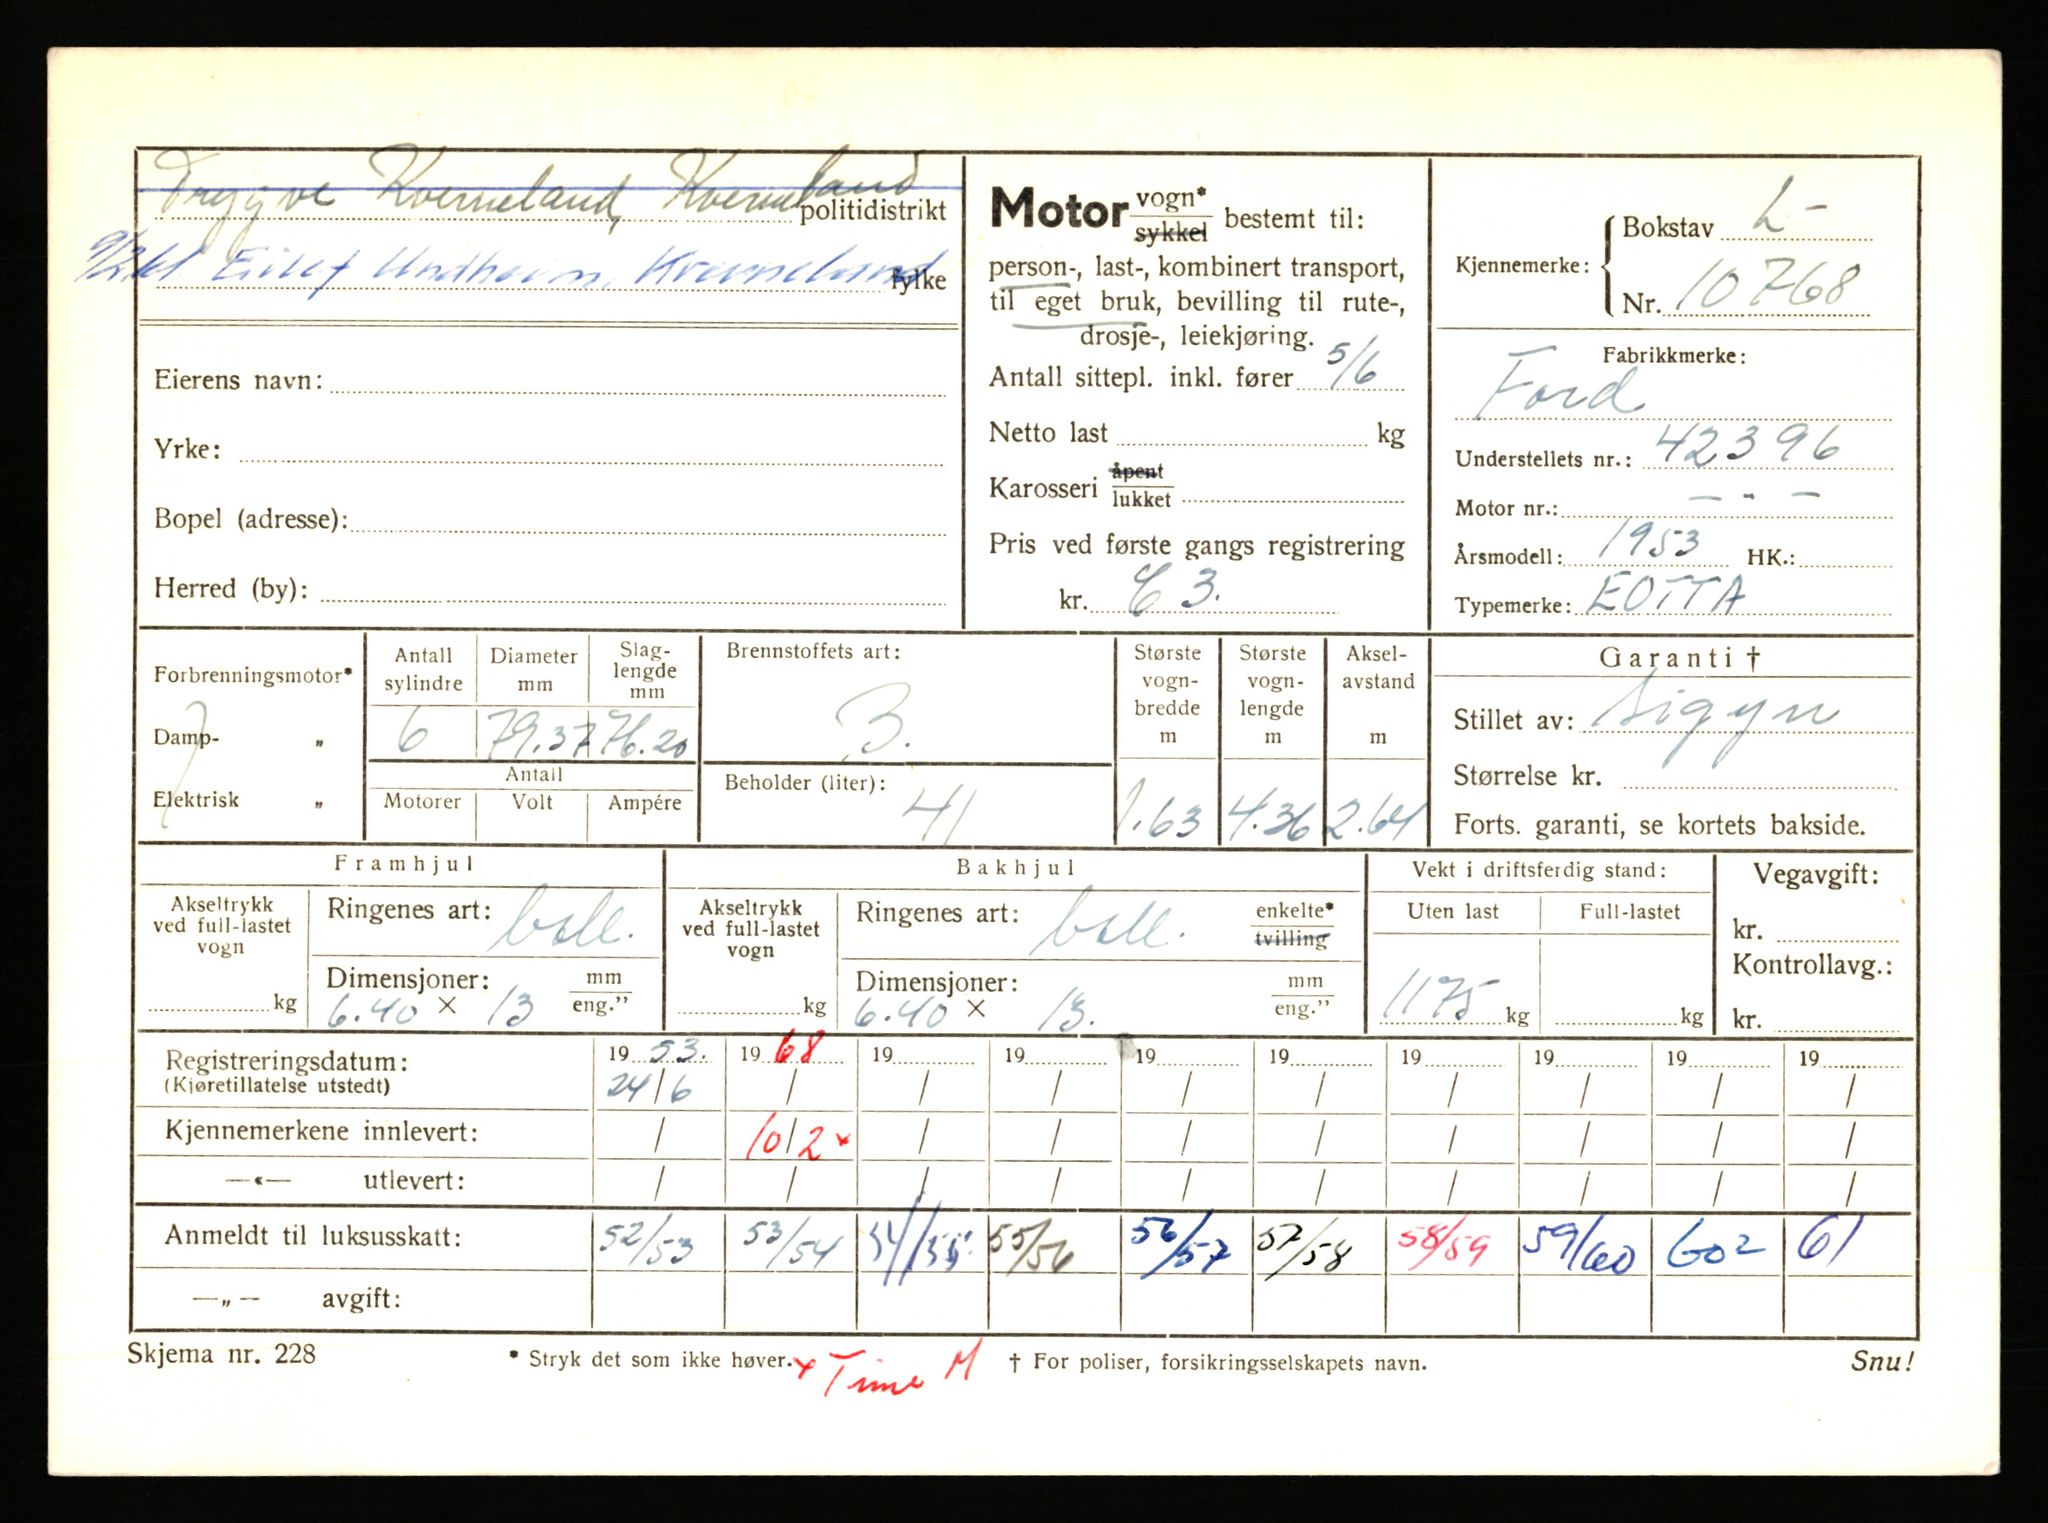 Trygve Kverneland, Kverneland politidistrikt
9/2.61 Eilef Undheim, Kverneland fylke
Eierens navn:
Yrke:
Bopel (adresse):
Herred (by):
Motor vogn* sykkel bestemt til:
person-, last-, kombinert transport,
til eget bruk, bevilling til rute-,
drosje-, leiekjøring.
Antall sittepl. inkl. fører 5/6
Netto last kg
Karosseri åpent lukket
Pris ved første gangs registrering
kr. C 3.
Kjennemerke: Bokstav L-
Nr. 10768
Fabrikkmerke:
Ford
Understellets nr.: 42396
Motor nr.: - - -
Årsmodell: 1953 HK.:
Typemerke: EOTTA
Forbrenningsmotor*
Damp- „
Elektrisk „
Antall sylindre Diameter mm Slag-lengde mm
6 79.37 76.20
Antall
Motorer Volt Ampére
Brennstoffets art:
B.
Beholder (liter):
41
Største vogn-bredde m
1.63
Største vogn-lengde m
4.36
Aksel-avstand m
2.64
Garanti †
Stillet av: Sigyn
Størrelse kr.
Forts. garanti, se kortets bakside.
Framhjul
Akseltrykk ved full-lastet vogn
kg
Ringenes art: ball.
Dimensjoner: mm eng.”
6.40 × 13
Bakhjul
Akseltrykk ved full-lastet vogn
kg
Ringenes art: ball. enkelte* tvilling
Dimensjoner: mm eng.”
6.40 × 13.
Vekt i driftsferdig stand:
Uten last Full-lastet
1175 kg kg
Vegavgift:
kr.
Kontrollavg.:
kr.
Registreringsdatum: 19 53. 19 68 19 19 19 19 19 19 19 19
(Kjøretillatelse utstedt) 24/6 / / / / / / / / /
Kjennemerkene innlevert: / 10/2 × / / / / / / / /
—«— utlevert: / / / / / / / / / /
Anmeldt til luksusskatt: 52/53 53/54 54/55 55/56 56/57 57/58 58/59 59/60 602 61
—„— avgift:
Skjema nr. 228 * Stryk det som ikke høver. × Time M † For poliser, forsikringsselskapets navn. Snu!